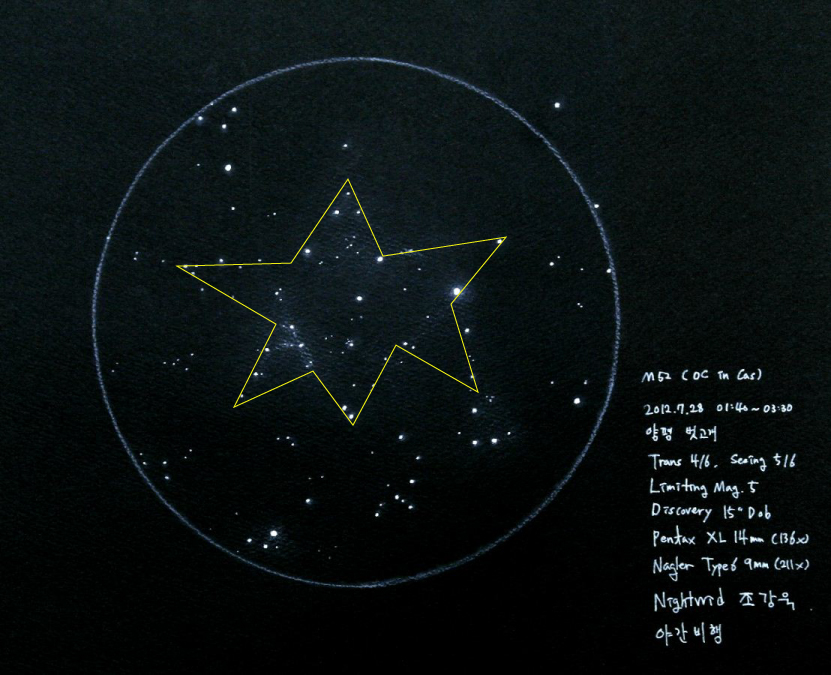 M52 (OC in Cas)
2012.7.28 01:40~03:30
양평 벗고개
Trans 4/6, Seeing 5/6
Limiting Mag. 5
Discovery 15" Dob
Pentax XL 14mm (136x)
Nagler Type6 9mm (211x)
Nightwid 조강욱
야간비행